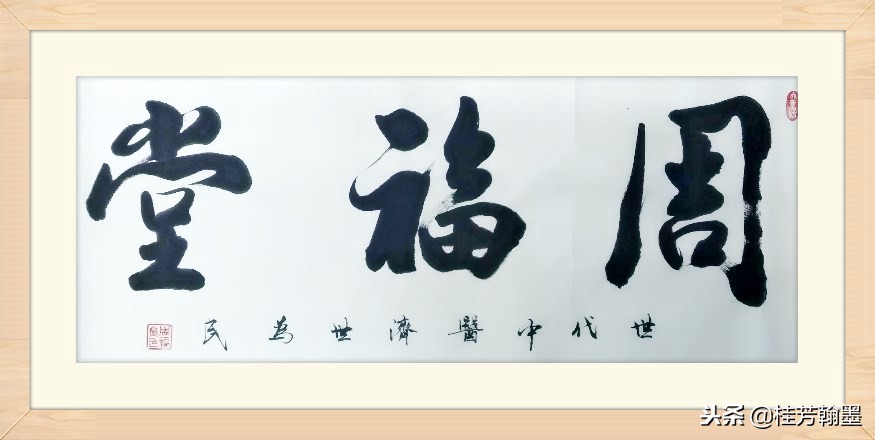 周福堂
世代中醫濟世為民
头条 @桂芳翰墨